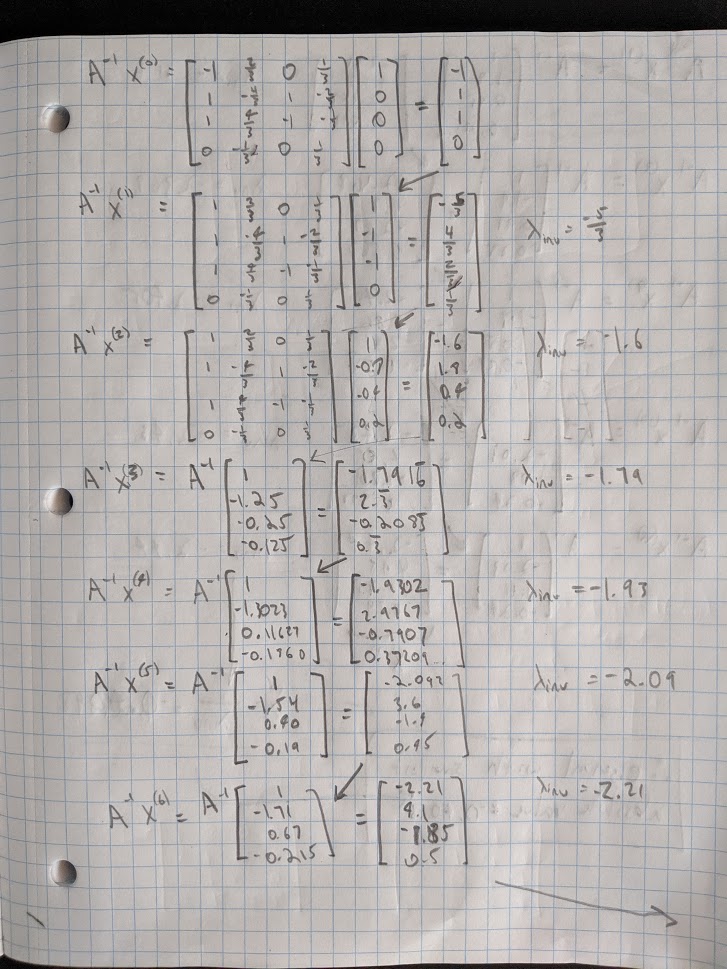 A⁻¹ x⁽⁰⁾ = [-1 2/3 0 1/3; 1 -1; 1 -1; 0 0] [1; 0; 0; 0] = [-1; 1; 1; 0]
A⁻¹ x⁽¹⁾ = [1 2/3 0 1/3; 1 -4/3 -1 -2/3; 1 -4/3 -1 1/3; 0 -1/3 0 1/3] [1; -1; -1; 0] = [-5/3; 4/3; 2/3; 1/3] λinv = -5/3
A⁻¹ x⁽²⁾ = [1 2/3 0 1/3; 1 -4/3 1 -2/3; 1 -4/3 -1 1/3; 0 -1/3 0 1/3] [1; -0.7; -0.4; 0.2] = [-1.6; 1.8; 0.4; 0.2] λinv = -1.6
A⁻¹ x⁽³⁾ = A⁻¹ [1; -1.25; -0.25; -0.125] = [-1.7916; 2.3; -0.2083; 0.3] λinv = -1.79
A⁻¹ x⁽⁴⁾ = A⁻¹ [1; -1.3023; 0.11627; -0.1860] = [-1.9302; 2.9767; -0.7907; 0.37209...] λinv = -1.93
A⁻¹ x⁽⁵⁾ = A⁻¹ [1; -1.54; 0.40; -0.19] = [-2.092; 3.6; -1.4; 0.45] λinv = -2.09
A⁻¹ x⁽⁶⁾ = A⁻¹ [1; -1.71; 0.67; -0.215] = [-2.21; 4.1; -1.85; 0.5] λinv = -2.21